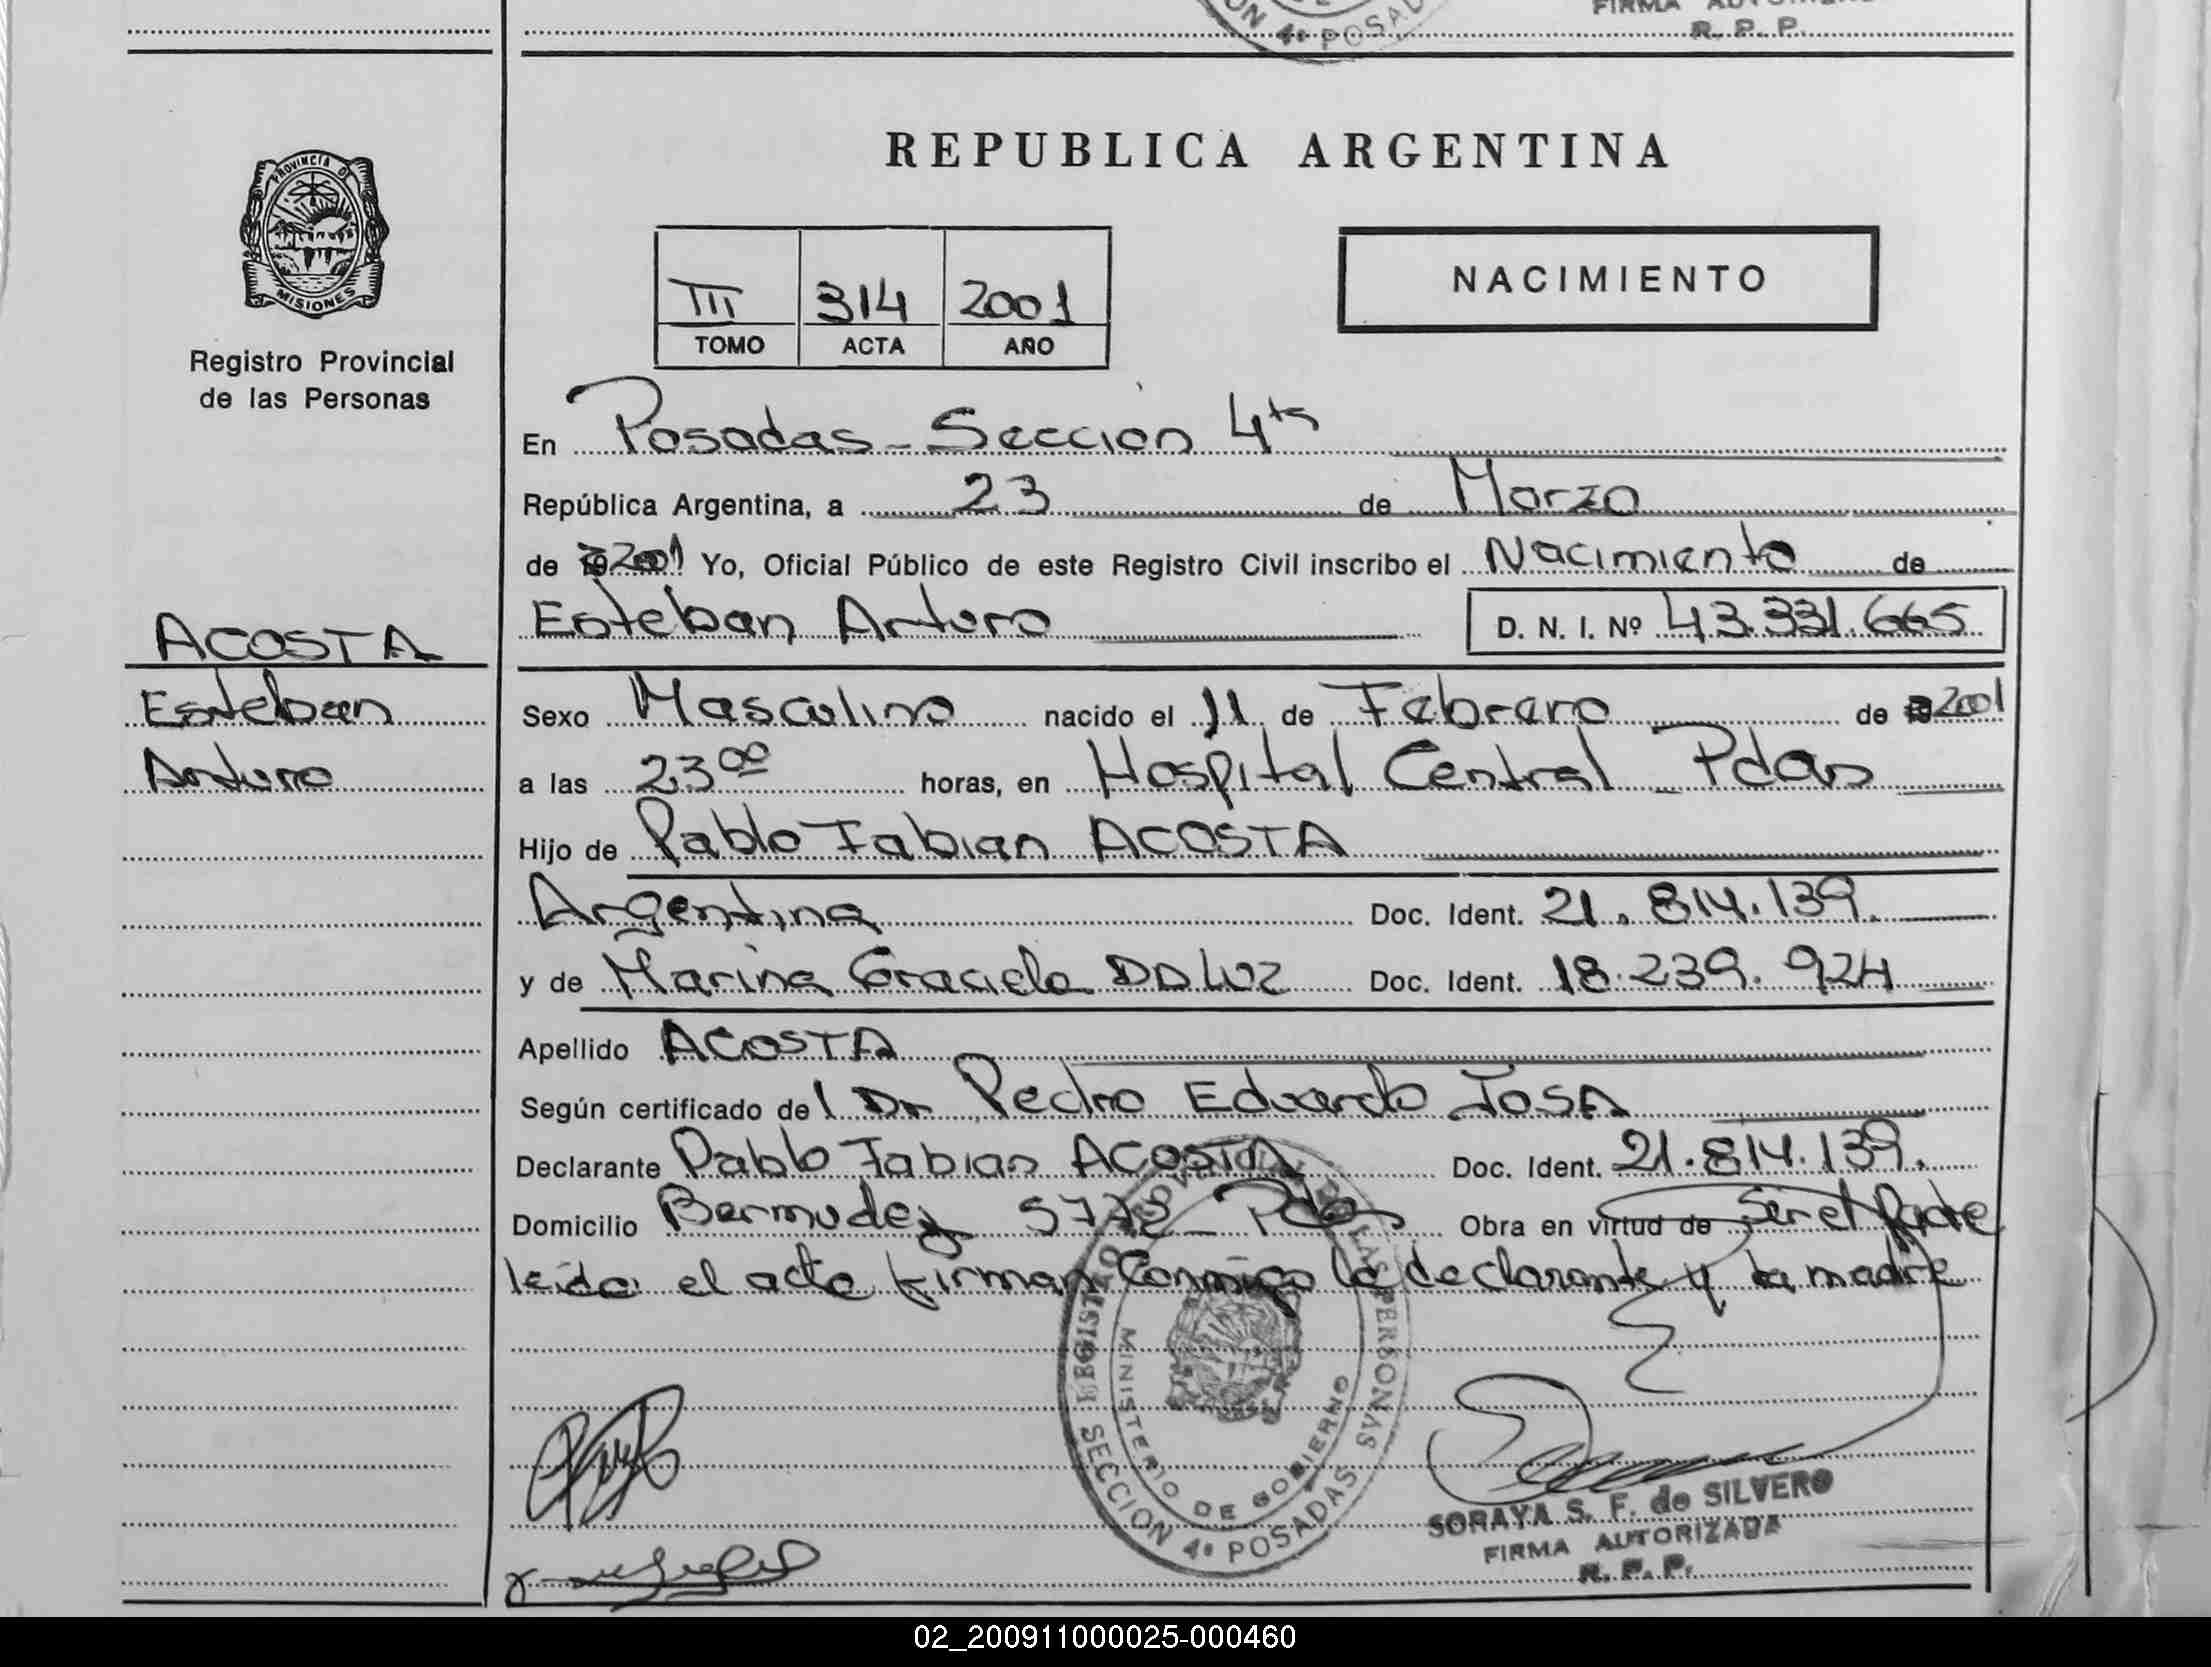 FIRMA AUTORIZADA
R. P. P.
SECCION 4ª POSADAS
REPUBLICA ARGENTINA
PROVINCIA DE MISIONES
Registro Provincial
de las Personas
III 314 2001
TOMO ACTA AÑO
NACIMIENTO
En Posadas - Sección 4ta
República Argentina, a 23 de Marzo
de 2001 Yo, Oficial Público de este Registro Civil inscribo el Nacimiento de
ACOSTA
Esteban Arturo D. N. I. Nº 43.331.665
Esteban
Sexo Masculino nacido el 11 de Febrero de 2001
Arturo
a las 23 00 horas, en Hospital Central - Pdas
Hijo de Pablo Fabian ACOSTA
Argentina Doc. Ident. 21.814.139.
y de Marina Graciela DA LUZ Doc. Ident. 18.239.924
Apellido ACOSTA
Según certificado del Dr Pedro Eduardo JOSA
Declarante Pablo Fabian ACOSTA Doc. Ident. 21.814.139.
Domicilio Bermudez 5772 - Pdas Obra en virtud de Ser el Padre
leida el acta firman Conmigo la declarante y la madre
REGISTRO PROVINCIAL DE LAS PERSONAS
MINISTERIO DE GOBIERNO
SECCION 4ª POSADAS
SORAYA S. F. de SILVERO
FIRMA AUTORIZADA
R. P. P.
02_200911000025-000460